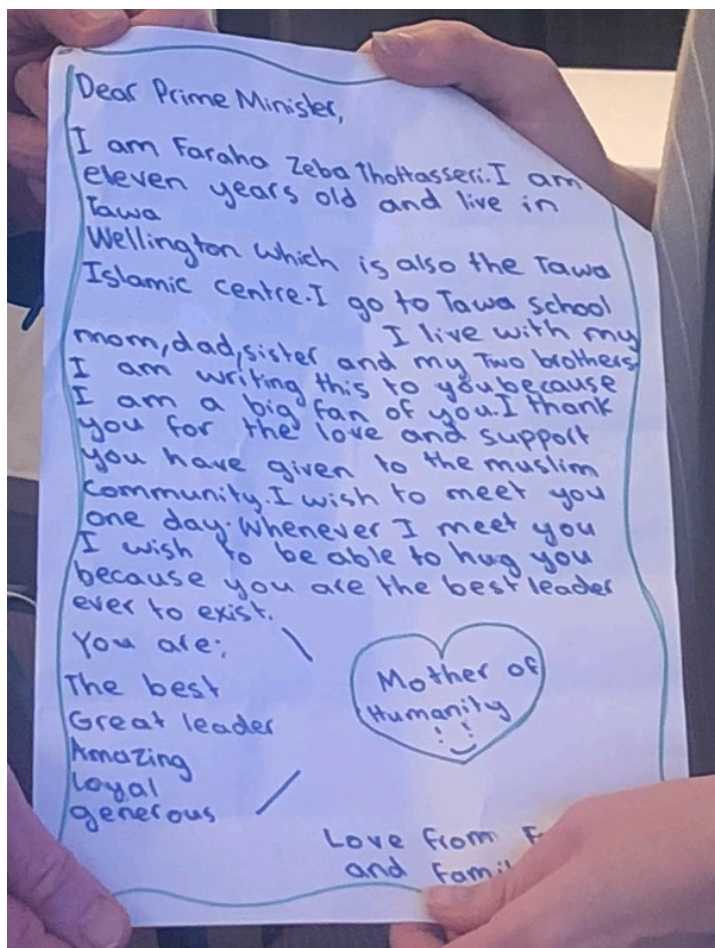 Dear Prime Minister,
I am Faraha Zeba Thottasseri. I am
eleven years old and live in
Tawa
Wellington which is also the Tawa
Islamic centre. I go to Tawa school
I live with my
mom, dad, sister and my Two brothers
I am writing this to you because
I am a big fan of you. I thank
you for the love and support
you have given to the muslim
community. I wish to meet you
one day. Whenever I meet you
I wish to be able to hug you
because you are the best leader
ever to exist.
You are:
The best
Great leader
Amazing
Loyal
generous
Mother of
Humanity
Love from F
and Famil